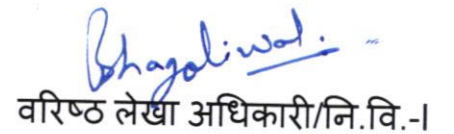 Bhagaliwal.
वरिष्ठ लेखा अधिकारी/नि.वि.-I